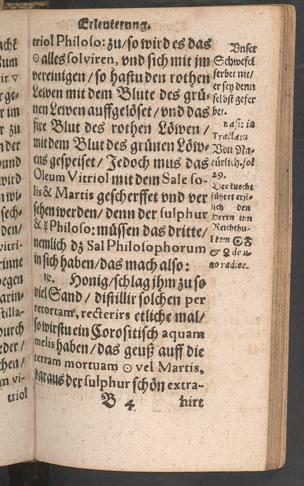 Erleuterung.
triol Philoso: zu/so wird es das
☉ alles solviren, vnd sich mit jm
vereinigen/so hastu den rothen
Lewen mit dem Blute des grü-
nen Lewen auffgelöset/vnd das
fixe Blut des rothen Löwen/
mit dem Blut des grünen Löw-
ens gespeiset/Jedoch mus das
Oleum Vitriol mit dem Sale so-
lis & Martis gescherffet vnd ver
sehen werden/denn der sulphur
& ☿ Philoso: müssen das dritte/
nemlich dz Sal Philosophorum
in sich haben/das mach also:
℞. Honig/schlag ihm zu so
viel Sand/distillir solchen per
retortam, rectirirs etliche mal/
so wirstu ein Corositisch aquam
mellis haben/das geuß auff die
terram mortuam ☉ vel Martis,
daraus der sulphur schön extra-
B 4 hirt
Vnser
Schwefel
ferbet nit/
er sey denn
selbst gefer
bet.
Tractatu
Von Na-
türlich. fol
29.
führet
den
Herrn